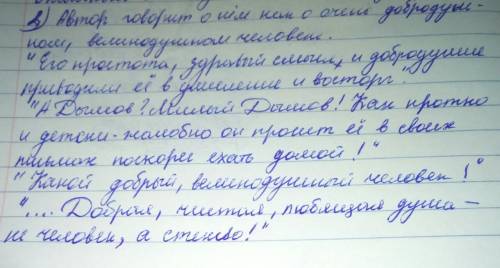 2) Автор говорит о нём как о очень добродуш-
ном, великодушном человеке.
"Его простота, здравый смысл, и добродушие
приводили её в умиление и восторг."
"А Дымов? Милый Дымов! Как кротко
и детски-жалобно он просит её в своих
письмах поскорее ехать домой!"
"Какой добрый, великодушный человек!"
"... Добрая, чистая, любящая душа -
не человек, а стекло!"